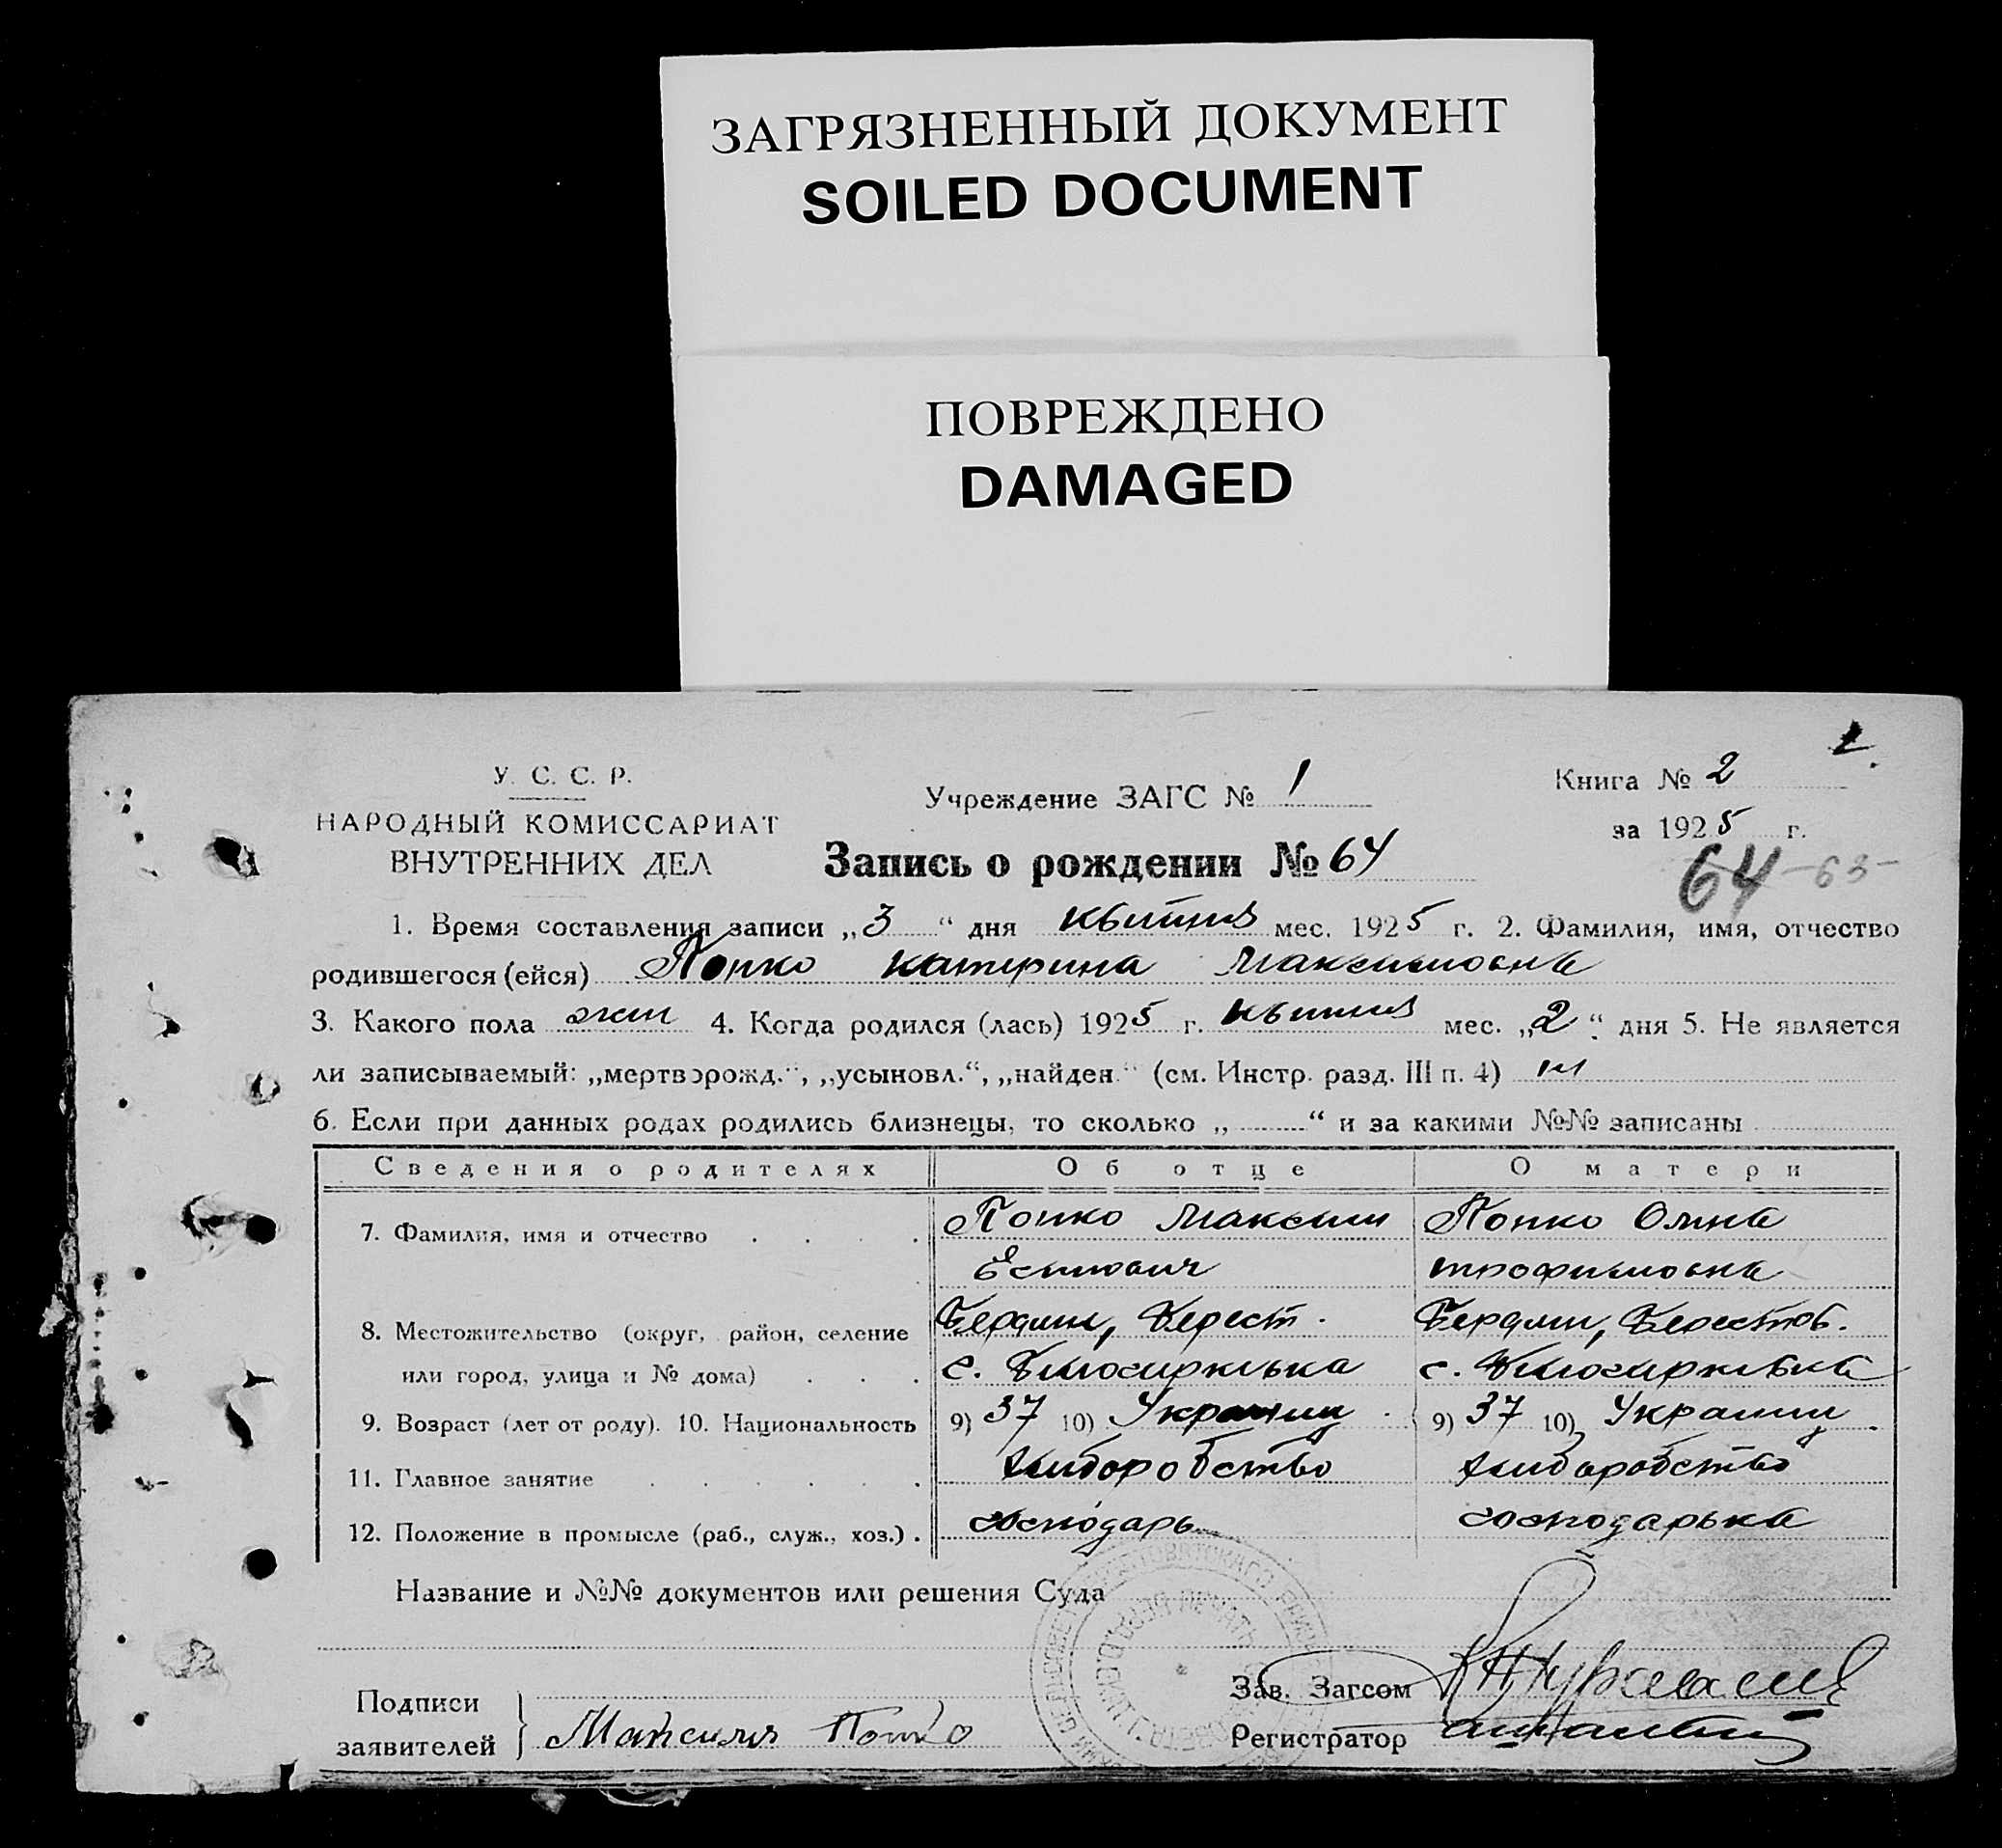 ЗАГРЯЗНЕННЫЙ ДОКУМЕНТ
SOILED DOCUMENT
ПОВРЕЖДЕНО
DAMAGED
У. С. С. Р.
НАРОДНЫЙ КОМИССАРИАТ
ВНУТРЕННИХ ДЕЛ
Учреждение ЗАГС № 1
Книга № 2
за 1925 г.
Запись о рождении № 64
64 - 63 -
1. Время составления записи „3“ дня квітня мес. 1925 г. 2. Фамилия, имя, отчество
родившегося (ейся) Попко Катерина Максимовна
3. Какого пола жін 4. Когда родился (лась) 1925 г. квітня мес. „2“ дня 5. Не является
ли записываемый: „мертворожд.“, „усыновл.“, „найден.“ (см. Инстр. разд. III п. 4) ні
6. Если при данных родах родились близнецы, то сколько „ “ и за какими №№ записаны
Сведения о родителях Об отце О матери
7. Фамилия, имя и отчество Попко Максим Попко Олина
Есипович трофимовна
8. Местожительство (округ, район, селение Бердян, Берест. Бердян, Берестов.
или город, улица и № дома) с. с.
9. Возраст (лет от роду). 10. Национальность 9) 37 10) Українц 9) 37 10) Українц
11. Главное занятие хліборобство хліборобство
12. Положение в промысле (раб., служ., хоз.) господарь господарька
Название и №№ документов или решения Суда
Подписи
заявителей Максим Попко
Зав. Загсом
Регистратор